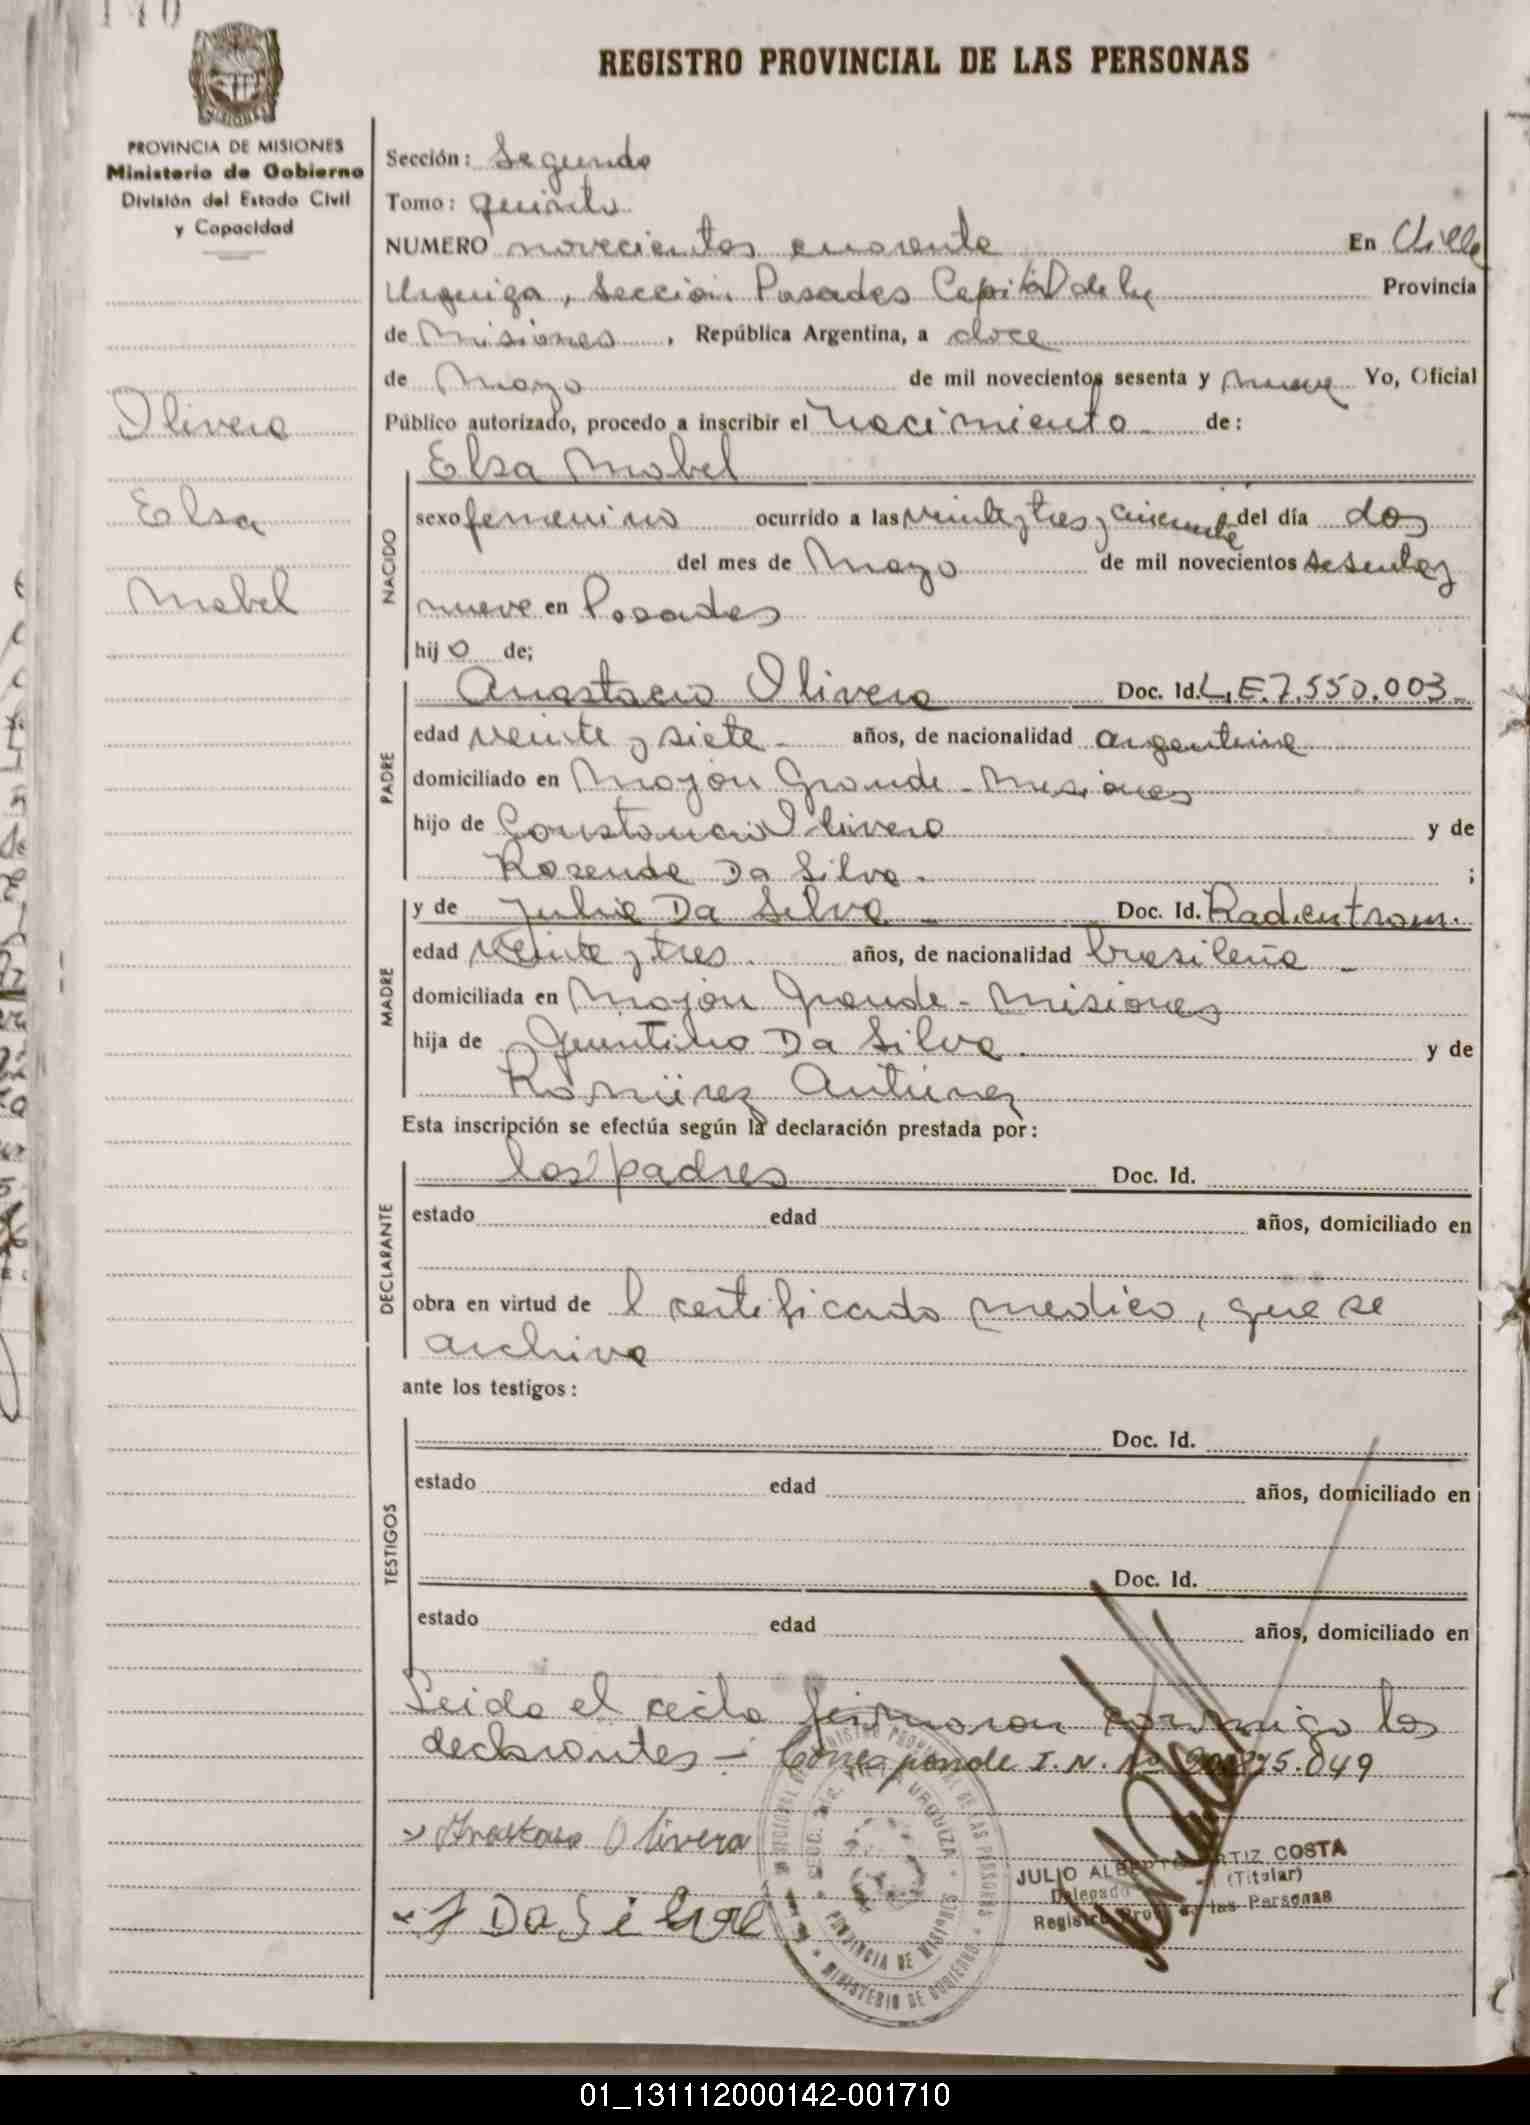 REGISTRO PROVINCIAL DE LAS PERSONAS
PROVINCIA DE MISIONES
Ministerio de Gobierno
División del Estado Civil
y Capacidad
Olivera
Elsa
Mabel
Sección: Segunda
Tomo: quinto
NUMERO novecientos cuarenta En Villa
Urquiza, Sección Posadas Capital de la Provincia
de Misiones, República Argentina, a doce
de Mayo de mil novecientos sesenta y nueve Yo, Oficial
Público autorizado, procedo a inscribir el nacimiento de:
Elsa Mabel
NACIDO
sexo femenino ocurrido a las veinte y tres y cincuenta del día dos
del mes de Mayo de mil novecientos sesenta y
nueve en Posadas
hij o de;
PADRE
Anastacio Olivera Doc. Id. L.E. 7.550.003
edad veinte y siete años, de nacionalidad argentina
domiciliado en Mojón Grande - Misiones
hijo de Constancio Olivera y de
Rosende Da Silva. ;
MADRE
y de Julia Da Silva Doc. Id. Rad. en tram.
edad veinte y tres. años, de nacionalidad brasileña
domiciliada en Mojón Grande - Misiones
hija de Quintino Da Silva. y de
Ramírez Antúnez
Esta inscripción se efectúa según la declaración prestada por:
DECLARANTE
los padres Doc. Id.
estado edad años, domiciliado en
obra en virtud de l certificado medico, que se
archiva
ante los testigos:
TESTIGOS
Doc. Id.
estado edad años, domiciliado en
Doc. Id.
estado edad años, domiciliado en
Leida el acta firmaron conmigo los
declarantes - Corresponde I.N. Nº
Olivera
J Da Silva
JULIO ALBERTO ORTIZ COSTA
(Titular)
Delegado
Registro Prov. de las Personas
PROVINCIA DE MISIONES
MINISTERIO DE GOBIERNO
01_131112000142-001710